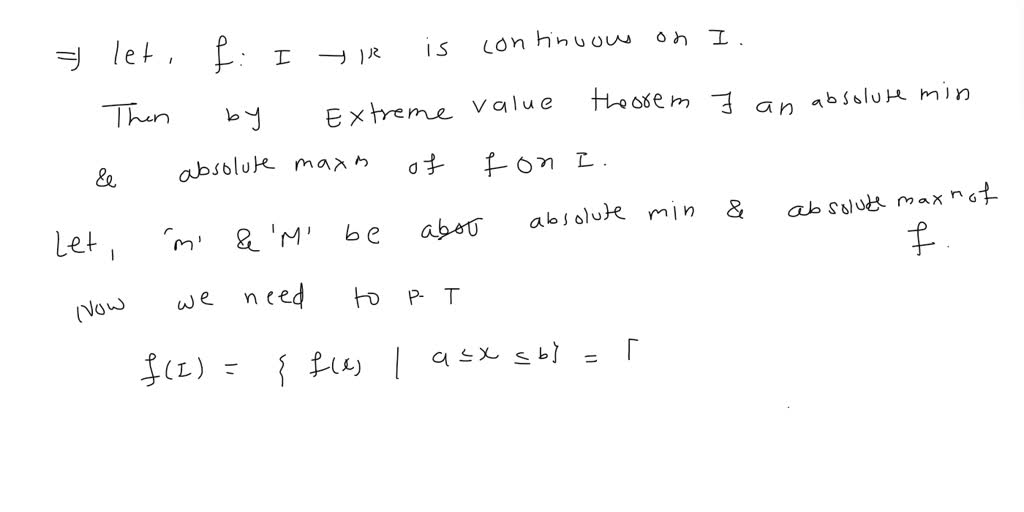 ⇒ let, f: I → IR is continuous on I.
Then by Extreme value theorem ∃ an absolute min
& absolute maxm of f on I.
Let, 'm' & 'M' be absolute min & absolute maxm of
f.
Now we need to P.T
f(I) = { f(x) | a ≤ x ≤ b} = [